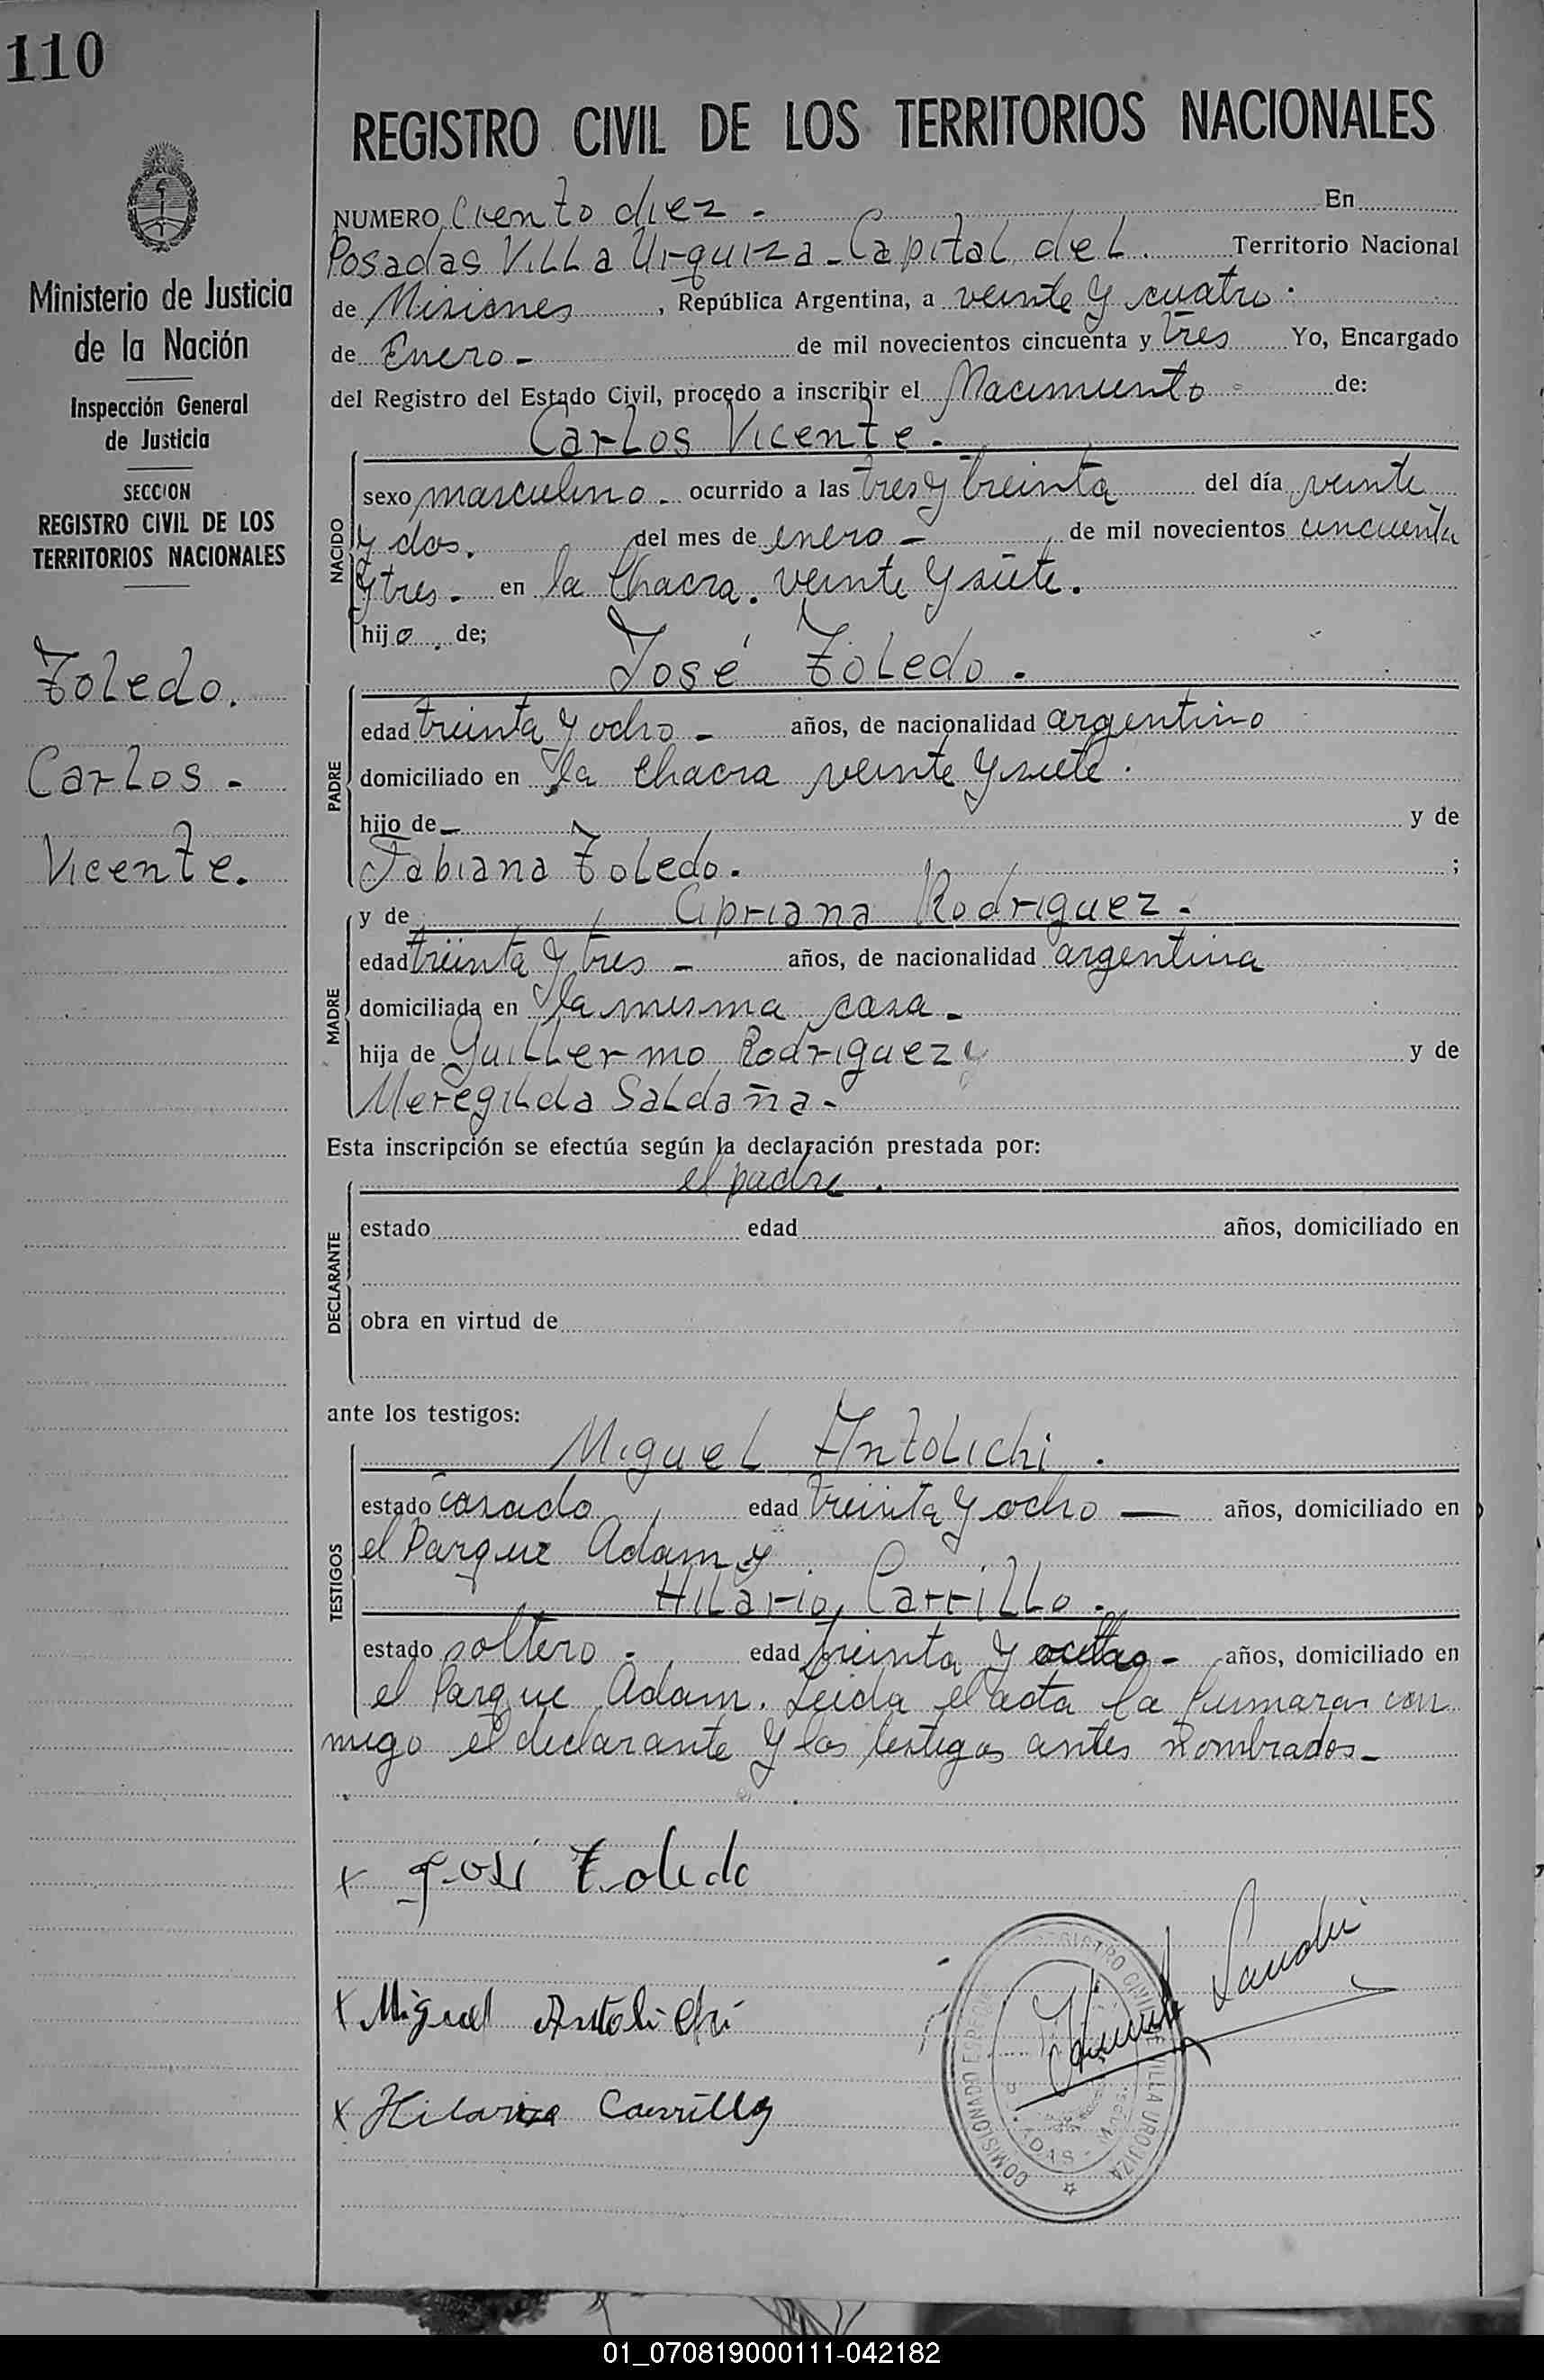 110
REGISTRO CIVIL DE LOS TERRITORIOS NACIONALES
NUMERO Ciento diez - En
Posadas Villa Urquiza - Capital del. Territorio Nacional
de Misiones, República Argentina, a veinte y cuatro.
de Enero - de mil novecientos cincuenta y tres Yo, Encargado
del Registro del Estado Civil, procedo a inscribir el Nacimiento de:
Carlos Vicente.
NACIDO
sexo masculino - ocurrido a las tres y treinta del día veinte
y dos. del mes de enero - de mil novecientos cincuenta
y tres - en la Chacra. veinte y siete.
hijo. de;
José Toledo.
PADRE
edad treinta y ocho - años, de nacionalidad argentino
domiciliado en la chacra veinte y siete.
hijo de - y de
Fabiana Toledo. ;
MADRE
y de Cipriana Rodriguez -
edad treinta y tres - años, de nacionalidad argentina
domiciliada en la misma casa -
hija de Guillermo Rodriguez y y de
Meregilda Saldaña -
Esta inscripción se efectúa según la declaración prestada por:
el padre.
DECLARANTE
estado edad años, domiciliado en
obra en virtud de
ante los testigos:
Miguel Antolichi.
TESTIGOS
estado casado, edad treinta y ocho — años, domiciliado en
el Parque Adam y
Hilario Carrillo -
estado soltero - edad treinta y ocho - años, domiciliado en
el Parque Adam. Leida el acta la firmaron con
migo el declarante y los testigos antes nombrados -
x José Toledo
x Miguel Antolichi
x Hilario Carrillo
REGISTRO CIVIL DE VILLA URQUIZA
COMISIONADO ESPECIAL
Ministerio de Justicia
de la Nación
Inspección General
de Justicia
SECCION
REGISTRO CIVIL DE LOS
TERRITORIOS NACIONALES
Toledo.
Carlos -
Vicente.
01_070819000111-042182